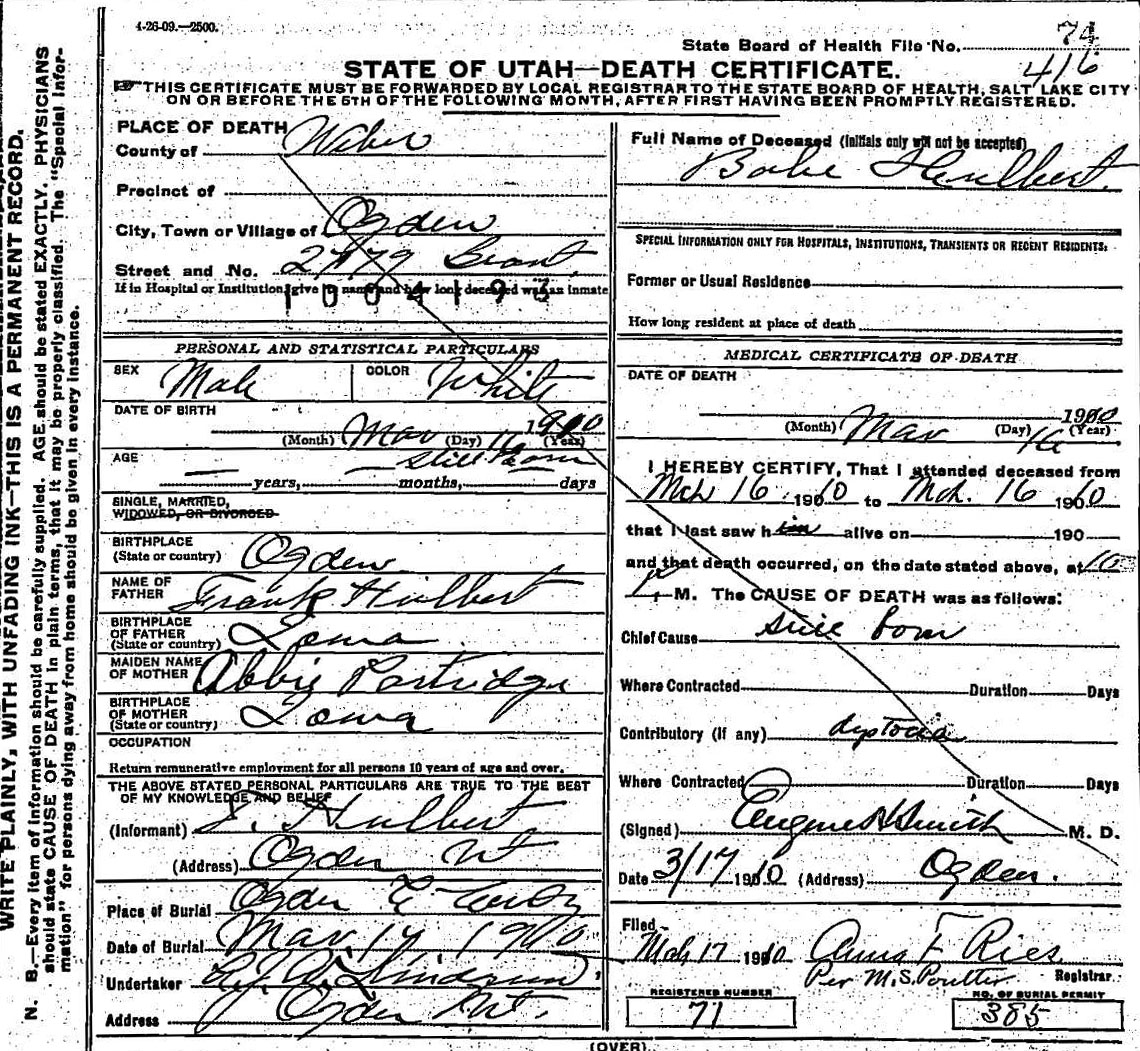 4-26-09.—2500.
State Board of Health File No. 74
416
STATE OF UTAH—DEATH CERTIFICATE.
THIS CERTIFICATE MUST BE FORWARDED BY LOCAL REGISTRAR TO THE STATE BOARD OF HEALTH, SALT LAKE CITY
ON OR BEFORE THE 5TH OF THE FOLLOWING MONTH, AFTER FIRST HAVING BEEN PROMPTLY REGISTERED.
WRITE PLAINLY, WITH UNFADING INK—THIS IS A PERMANENT RECORD.
N. B.—Every item of information should be carefully supplied. AGE should be stated EXACTLY. PHYSICIANS
should state CAUSE OF DEATH in plain terms, that it may be properly classified. The "Special Infor-
mation" for persons dying away from home should be given in every instance.
PLACE OF DEATH
County of Weber
Precinct of
City, Town or Village of Ogden
Street and No. 2779 Grant
If in Hospital or Institution, give its name and how long deceased was an inmate
1004193
PERSONAL AND STATISTICAL PARTICULARS
SEX Male COLOR White
DATE OF BIRTH
(Month) Mar (Day) 16 1910 (Year)
AGE Still Born
years, months, days
SINGLE, MARRIED,
WIDOWED, OR DIVORCED
BIRTHPLACE
(State or country) Ogden
NAME OF
FATHER Frank Hulbert
BIRTHPLACE
OF FATHER
(State or country) Iowa
MAIDEN NAME
OF MOTHER Abbie Partridge
BIRTHPLACE
OF MOTHER
(State or country) Iowa
OCCUPATION
Return remunerative employment for all persons 10 years of age and over.
THE ABOVE STATED PERSONAL PARTICULARS ARE TRUE TO THE BEST
OF MY KNOWLEDGE AND BELIEF
(Informant) Hulbert
(Address) Ogden Ut
Place of Burial Ogden
Date of Burial Mar. 17 1910
Undertaker
Address Ogden Ut.
Full Name of Deceased (Initials only will not be accepted)
Babe Hulbert.
SPECIAL INFORMATION ONLY FOR HOSPITALS, INSTITUTIONS, TRANSIENTS OR RECENT RESIDENTS:
Former or Usual Residence
How long resident at place of death
MEDICAL CERTIFICATE OF DEATH
DATE OF DEATH
(Month) Mar (Day) 16 1910 (Year)
I HEREBY CERTIFY, That I attended deceased from
Mch 16 1910 to Mch. 16 1910
that I last saw him alive on 190
and that death occurred, on the date stated above, at 10
P. M. The CAUSE OF DEATH was as follows:
Chief Cause still born
Where Contracted Duration Days
Contributory (if any) dystocia
Where Contracted Duration Days
(Signed) Eugene H Smith M. D.
Date 3/17 1910 (Address) Ogden.
Filed
Mch 17 1910 Anna F Ries
Per M.S. Poulter Registrar
REGISTERED NUMBER
71
NO. OF BURIAL PERMIT
385
(OVER)